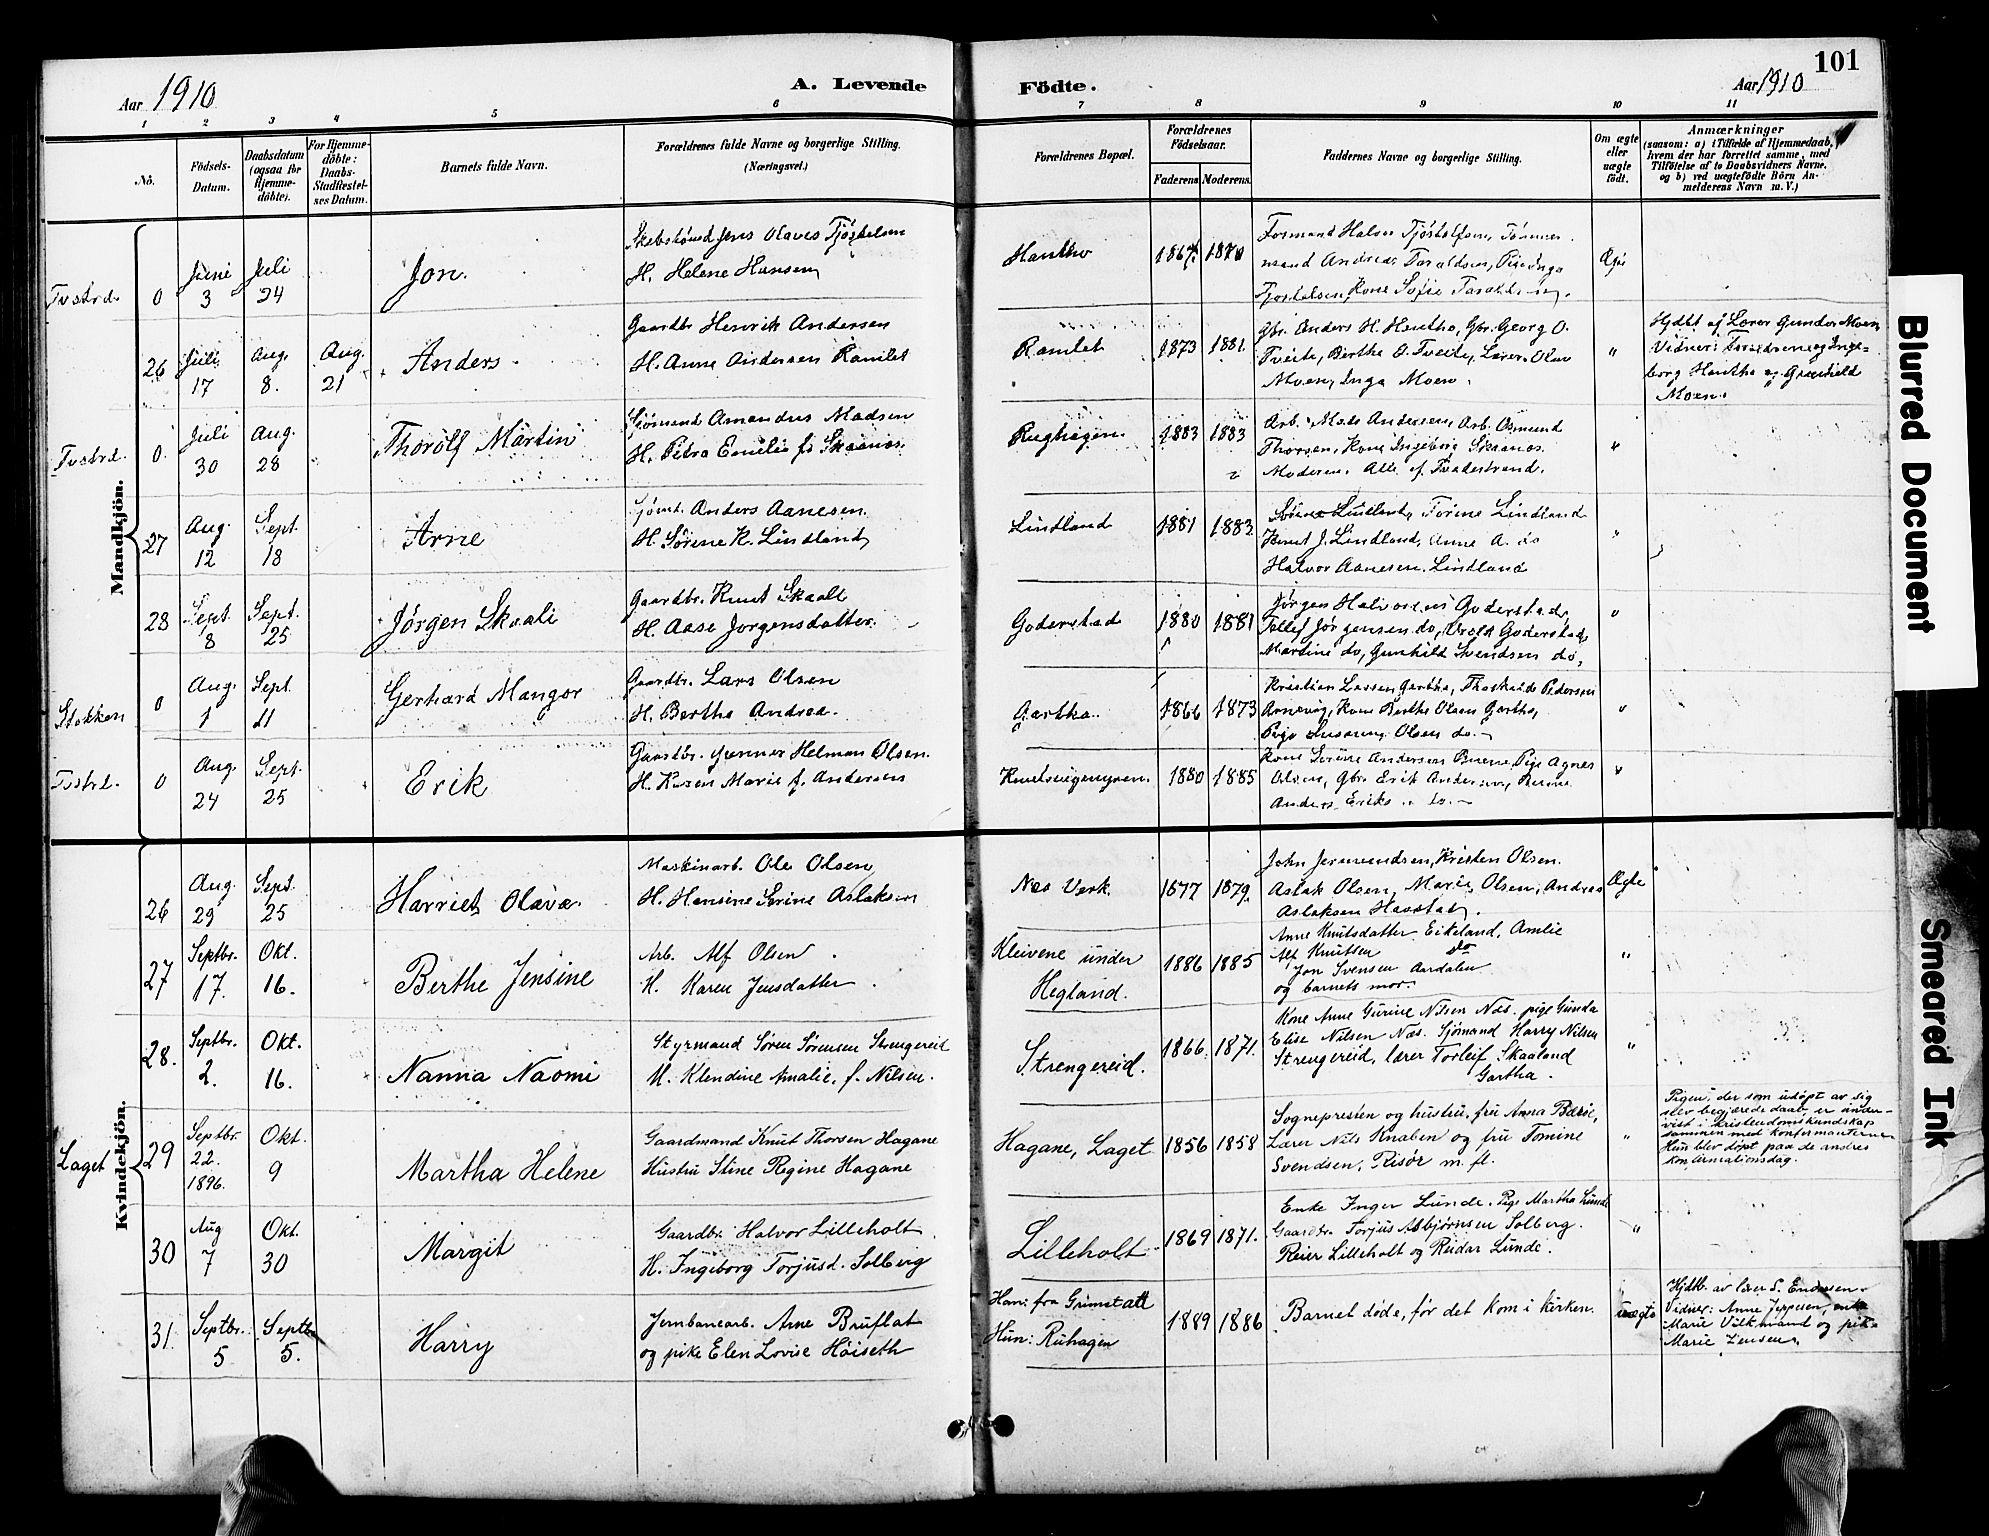 101
Aar 1910
A. Levende
Födte.
Aar 1910
1 2 3 4 5 6 7 8 9 10 11
No.
Födsels-
Datum.
Daabsdatum
(ogsaa for
Hjemme-
döbte).
For Hjemme-
döbte:
Daabs-
Stadfestel-
ses Datum.
Barnets fulde Navn.
Forældrenes fulde Navne og borgerlige Stilling.
(Næringsvei.)
Forældrenes Bopæl.
Forældrenes
Födselsaar.
Faderens. Moderens.
Faddernes Navne og borgerlige Stilling.
Om ægte
eller
uægte
födt.
Anmærkninger
(saasom: a) i Tilfælde af Hjemmedaab,
hvem der har forrettet samme, med
Tilföielse af to Daabsvidners Navne,
og b) ved uægtefödte Börn An-
melderens Navn m. V.)
Mandkjön.
Tvstrd. 0
Juni
3
Juli
24
Jon.
H. Helene Hansen
Hantho
1867 1870
Formand Halvor Tjøstolfsen, Tømmer-
mand Andreas Taraldsen, Pige Inga
Tjostolsen, Kone Sofie Taraldsen.
Ægte
26
Juli
17
Aug.
8.
Aug.
21
Anders
Gaardbr. Henrik Andersen
H. Anne Andersen Ramlet
Ramlet
1873 1881
Gbr. Anders H. Hantho, Gbr. Georg O.
Tveite, Berthe O. Tveite, Lærer Olav
Moen, Inga Moen.
"
Hjdbt af Lærer Gunder Moen
Vidner: Forældrene og Inge-
borg Hantho og Gunhild
Moen.
Tvstrd. 0.
Juli
30
Aug.
28
Thorolf Martin
Sjømand Amandus Madsen
H. Petra Emilie f. Skaanes.
Rughagen
1883 1883
Arb. Mads Andersen, Arb. Osmund
Thorsen, Kone Ingeborg Skaanes.
Moderen. Alle af Tvedestrand.
"
27
Aug.
12
Sept.
18
Arne
Sjømd. Anders Aanesen.
H. Sørene K. Lindland
Lindland
1881 1883
Sørene Lindland, Torine Lindland
Knut J. Lindland, Anne A. do
Halvor Aanesen Lindland
"
28
Sept.
8
Sept.
25
Jørgen Skaali
Gaardbr. Knut Skaali
H. Aase Jørgensdatter.
Goderstad
1880 1881
Jørgen Halvorsen Goderstad,
Tellef Jørgensen do, Goderstad,
Martine do, Gunhild Svendsen do,
"
Stokken 0
Aug.
1
Sept.
11
Gerhard Mangor
Gaardbr. Lars Olsen
H. Berthe Andrea.
Gartha.
1866 1873
Kristian Larsen Gartha, Pedersen
Arnevig, Kone Berthe Olsen Gartha,
Pige Olsen do.
"
Tvstrd. 0
Aug.
24
Sept.
25
Erik
Gaardbr. Gunner Helman Olsen.
H. Karen Marie f. Andersen
1880 1885
Kone Andersen Pige Agnes
Olsen, Gbr. Erik Andersen,
Anders Eriks. do.
"
Kvindekjön.
26
Aug.
29
Sept.
25
Harriet Olava.
Maskinarb. Ole Olsen
H. Hansine Serine Aslaksen
Nes Verk
1877 1879.
John Jermundsen, Kristen Olsen.
Aslak Olsen, Marie Olsen, Andrea
Aslaksen Havstad.
Ægte
27
Septbr.
17.
Okt.
16.
Berthe Jensine
Arb. Alf Olsen
H. Karen Jensdatter.
Kleivene under
Hegland.
1886 1885
Anne Knutsdatter Eikeland, Amlie
Alf Knutsen do
Jon Svensen Aardalen
og barnets mor.
"
28.
Septbr.
2.
Okt.
16.
Nanna Naomi
Styrmand Søren Sørensen Strengereid
H. Klendine Amalie, f. Nilsen.
Strengereid.
1866. 1871.
Kone Anne Gurine Nilsen Næs. pige Gunda
Elise Nilsen Næs. Sjømand Harry Nilsen
Strengereid, lærer Torleif Skaaland
Gartha.
"
Laget 29
Septbr.
22.
1896.
Okt.
9
Martha Helene
Gaardmand Knut Thorsen Hagane
Hustru Stine Regine Hagane
Hagane, Laget
1856 1858
Sognepresten og hustru, fru Anna Barøe,
Lærer Nils Knaben og fru Tomine
Svendsen, Risør m. fl.
"
Pigen, der som udøpt av sig
selv begjærede daab, er under-
vist i kristendomskundskap
sammen med konfirmanterne
Hun blev døpt paa de andres
konfirmationsdag.
30
Aug
7
Okt.
30
Margit
Gaardbr. Halvor Lilleholt
H. Ingeborg Torjusd. Solberg
Lilleholt
1869 1871.
Enke Inger Lunde. Pige Martha Lunde
Gaardbr. Torjus Asbjørnsen Solberg.
Reier Lilleholt og Reidar Lunde.
"
31.
Septbr.
5
Septbr.
5.
Harry
Jernbanearb. Arne Bruflat
og pike Elen Lovise Høiseth
Han: fra Grimstad
Hun: Ruhagen
1889 1886
Barnet døde, før det kom i kirken.
uægte
Hjdbt. av lærer S. Endresen.
Vidner: Anne Jeppesen, enke
Marie Vilkmand og pike
Marie Jensen.
Blurred Document
Smeared Ink